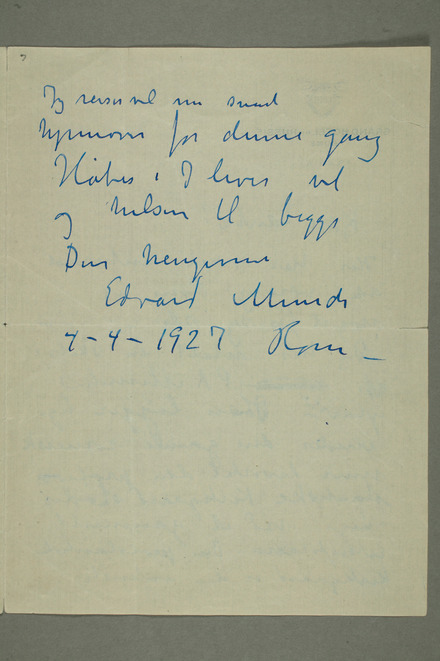 Jeg reiser vel nu snart
hjemover for denne gang
Håber I lever vel
og hilsen til begge
Din hengivne
Edvard Munch
4-4-1927 Rom